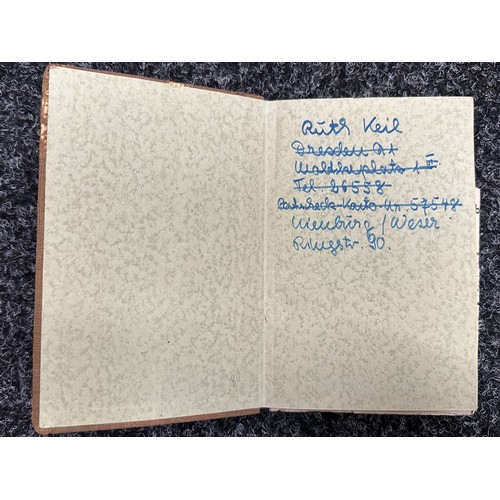 Ruth Keil
Dresden A1
Moltkeplatz 1 III
Tel. 26558
Postscheck-Konto-Nr. 57548
Nienburg / Weser
Ringstr. 90.